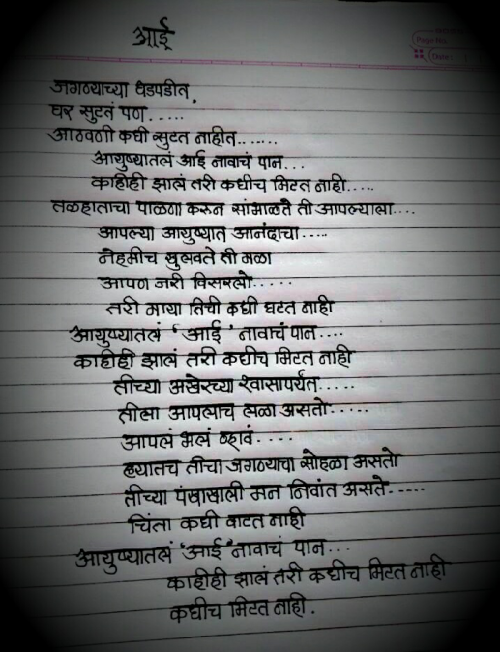 आई
जगण्याच्या धडपडीत,
घर सुटतं पण.....
आठवणी कधी सुटत नाहीत.......
आयुष्यातलं आई नावाचं पान...
काहीही झालं तरी कधीच मिटत नाही.....
तळहाताचा पाळणा करून सांभाळते ती आपल्याला....
आपल्या आयुष्यात आनंदाचा.....
नेहमीच फुलवते ती मळा
आपण जरी विसरलो.....
तरी माया तिची कधी घटत नाही
आयुष्यातलं 'आई' नावाचं पान....
काहीही झालं तरी कधीच मिटत नाही
तीच्या अखेरच्या श्वासापर्यंत.....
तीला आपलाच लळा असतो.....
आपलं भलं व्हावं....
ह्यातच तीचा जगण्याचा सोहळा असतो
तीच्या पंखाखाली मन निवांत असते.....
चिंता कधी वाटत नाही
आयुष्यातलं 'आई' नावाचं पान...
काहीही झालं तरी कधीच मिटत नाही
कधीच मिटत नाही.